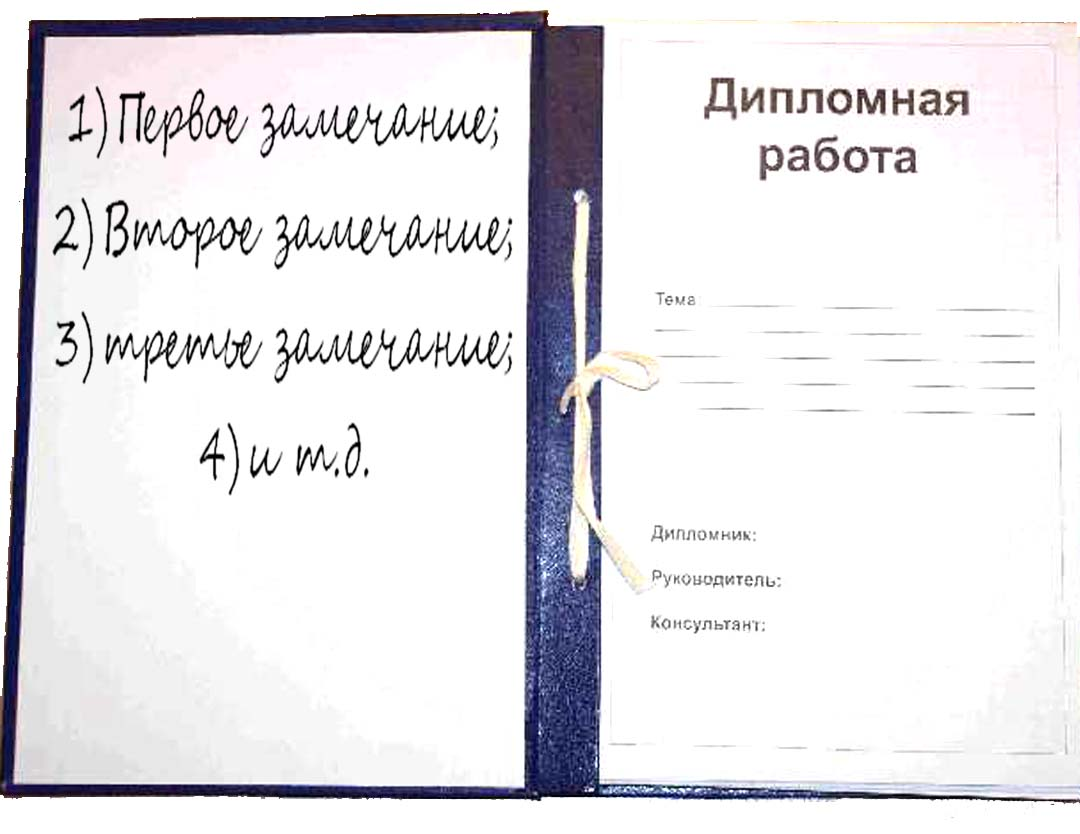 1) Первое замечание;
2) Второе замечание;
3) третье замечание;
4) и т.д.
Дипломная
работа
Тема
Дипломник:
Руководитель:
Консультант: